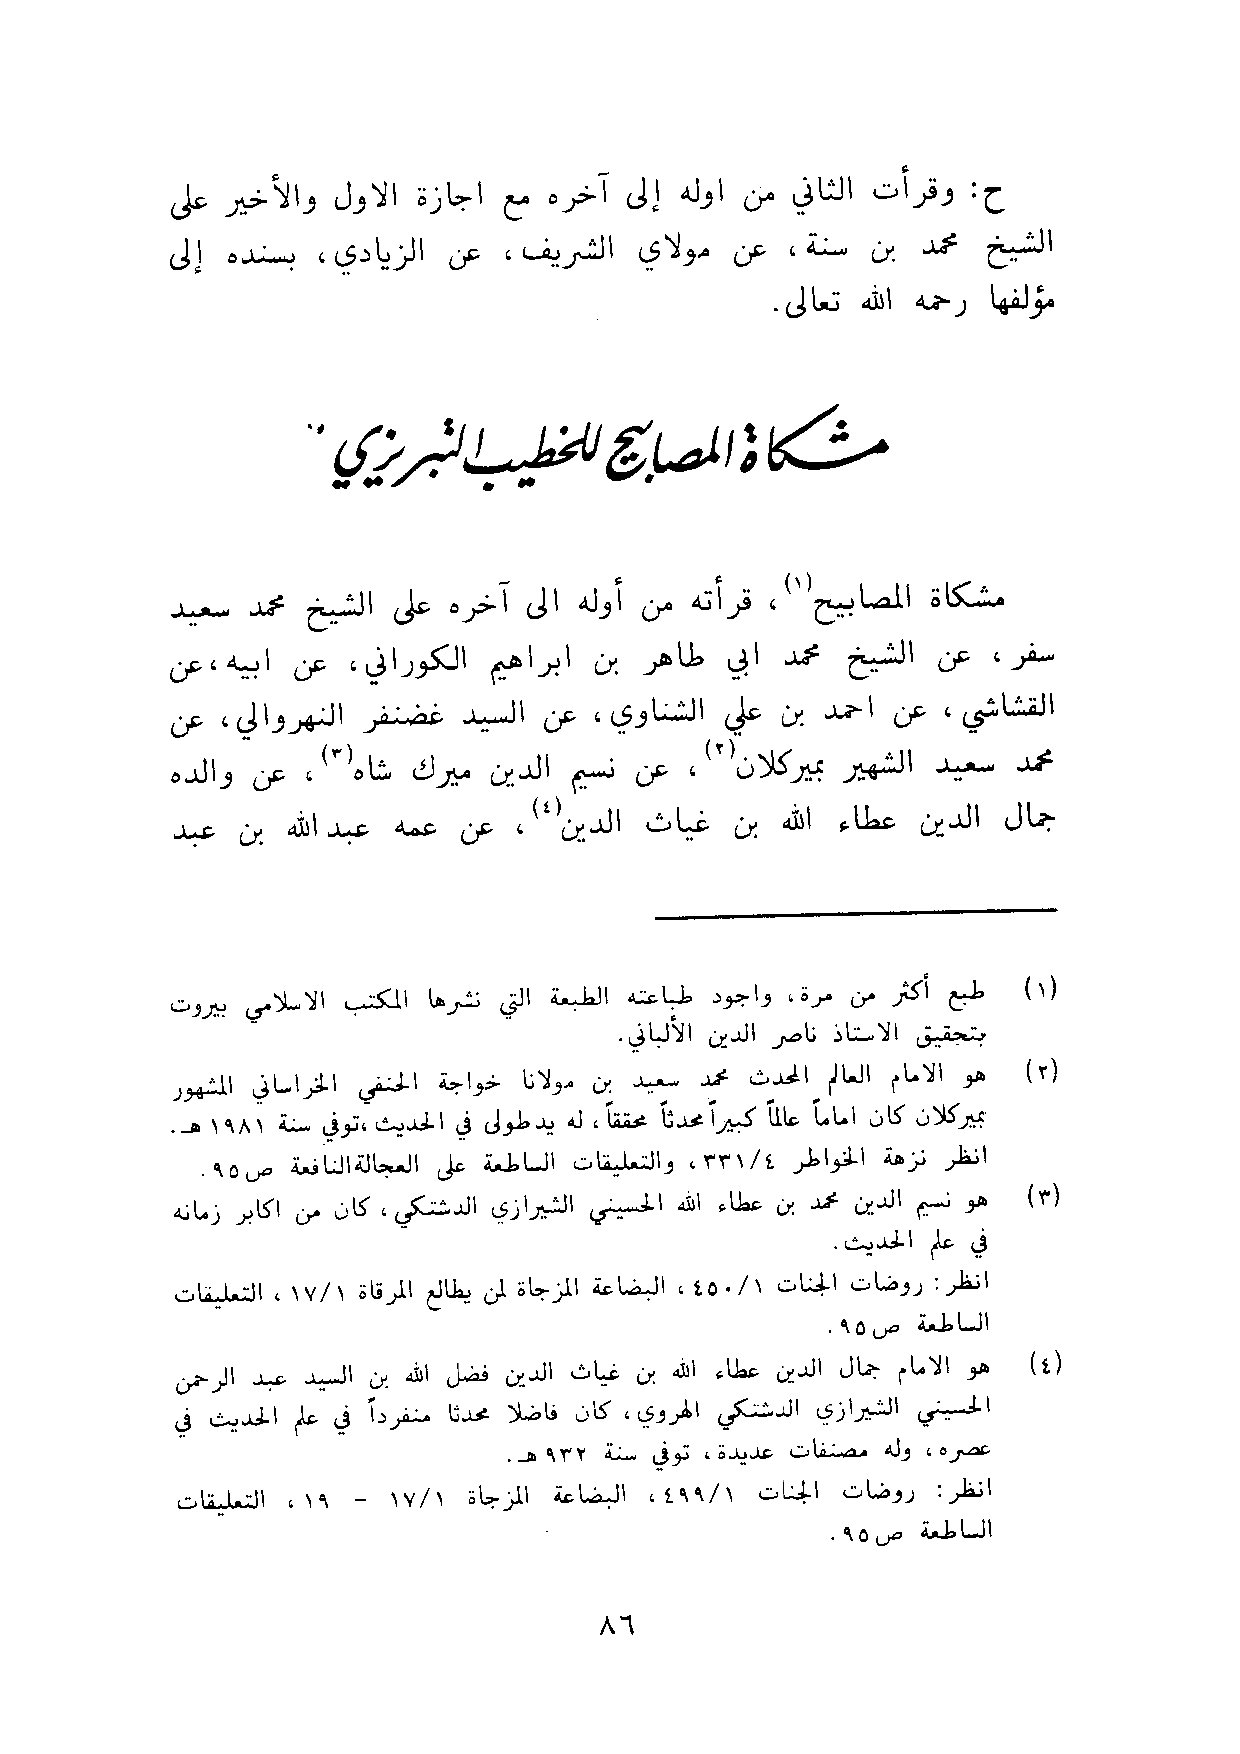 ح: وقرأت الثاني من اوله إلى آخره مع اجازة الاول والأخير على
الشيخ محمد بن سنة، عن مولاي الشريف، عن الزيادي، بسنده إلى
مؤلفها رحمه الله تعالى.
مشكاة المصابيح للخطيب التبريزي
مشكاة المصابيح(١)، قرأته من أوله الى آخره على الشيخ محمد سعيد
سفر، عن الشيخ محمد ابي طاهر بن ابراهيم الكوراني، عن ابيه، عن
القشاشي، عن احمد بن علي الشناوي، عن السيد غضنفر النهروالي، عن
محمد سعيد الشهير بميركلان(٢)، عن نسيم الدين ميرك شاه(٣)، عن والده
جمال الدين عطاء الله بن غياث الدين(٤)، عن عمه عبدالله بن عبد
(١) طبع أكثر من مرة، واجود طباعته الطبعة التي نشرها المكتب الاسلامي بيروت
بتحقيق الاستاذ ناصر الدين الألباني.
(٢) هو الامام العالم المحدث محمد سعيد بن مولانا خواجة الحنفي الخراساني المشهور
بميركلان كان اماماً عالماً كبيراً محدثاً محققاً، له يد طولى في الحديث، توفي سنة ١٩٨١ هـ.
انظر نزهة الخواطر ٣٣١/٤، والتعليقات الساطعة على العجالة النافعة ص٩٥.
(٣) هو نسيم الدين محمد بن عطاء الله الحسيني الشيرازي الدشتكي، كان من اكابر زمانه
في علم الحديث.
انظر: روضات الجنات ٤٥٠/١، البضاعة المزجاة لمن يطالع المرقاة ١٧/١، التعليقات
الساطعة ص٩٥.
(٤) هو الامام جمال الدين عطاء الله بن غياث الدين فضل الله بن السيد عبد الرحمن
الحسيني الشيرازي الدشتكي الهروي، كان فاضلا محدثا منفرداً في علم الحديث في
عصره، وله مصنفات عديدة، توفي سنة ٩٣٢ هـ.
انظر: روضات الجنات ٤٩٩/١، البضاعة المزجاة ١٧/١ - ١٩، التعليقات
الساطعة ص٩٥.
٨٦